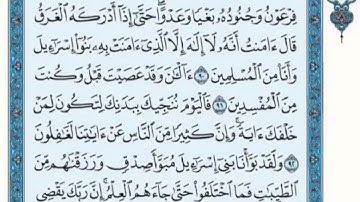 فِرْعَوْنُ وَجُنُودُهُۥ بَغْيًا وَعَدْوًا ۖ حَتَّىٰٓ إِذَآ أَدْرَكَهُ ٱلْغَرَقُ
قَالَ ءَامَنتُ أَنَّهُۥ لَآ إِلَٰهَ إِلَّا ٱلَّذِىٓ ءَامَنَتْ بِهِۦ بَنُوٓا۟ إِسْرَٰٓءِيلَ
وَأَنَا۠ مِنَ ٱلْمُسْلِمِينَ ٩٠ ءَآلْـَٰٔنَ وَقَدْ عَصَيْتَ قَبْلُ وَكُنتَ
مِنَ ٱلْمُفْسِدِينَ ٩١ فَٱلْيَوْمَ نُنَجِّيكَ بِبَدَنِكَ لِتَكُونَ لِمَنْ
خَلْفَكَ ءَايَةً ۚ وَإِنَّ كَثِيرًا مِّنَ ٱلنَّاسِ عَنْ ءَايَٰتِنَا لَغَٰفِلُونَ
٩٢ وَلَقَدْ بَوَّأْنَا بَنِىٓ إِسْرَٰٓءِيلَ مُبَوَّأَ صِدْقٍ وَرَزَقْنَٰهُم مِّنَ
ٱلطَّيِّبَٰتِ فَمَا ٱخْتَلَفُوا۟ حَتَّىٰ جَآءَهُمُ ٱلْعِلْمُ ۚ إِنَّ رَبَّكَ يَقْضِى